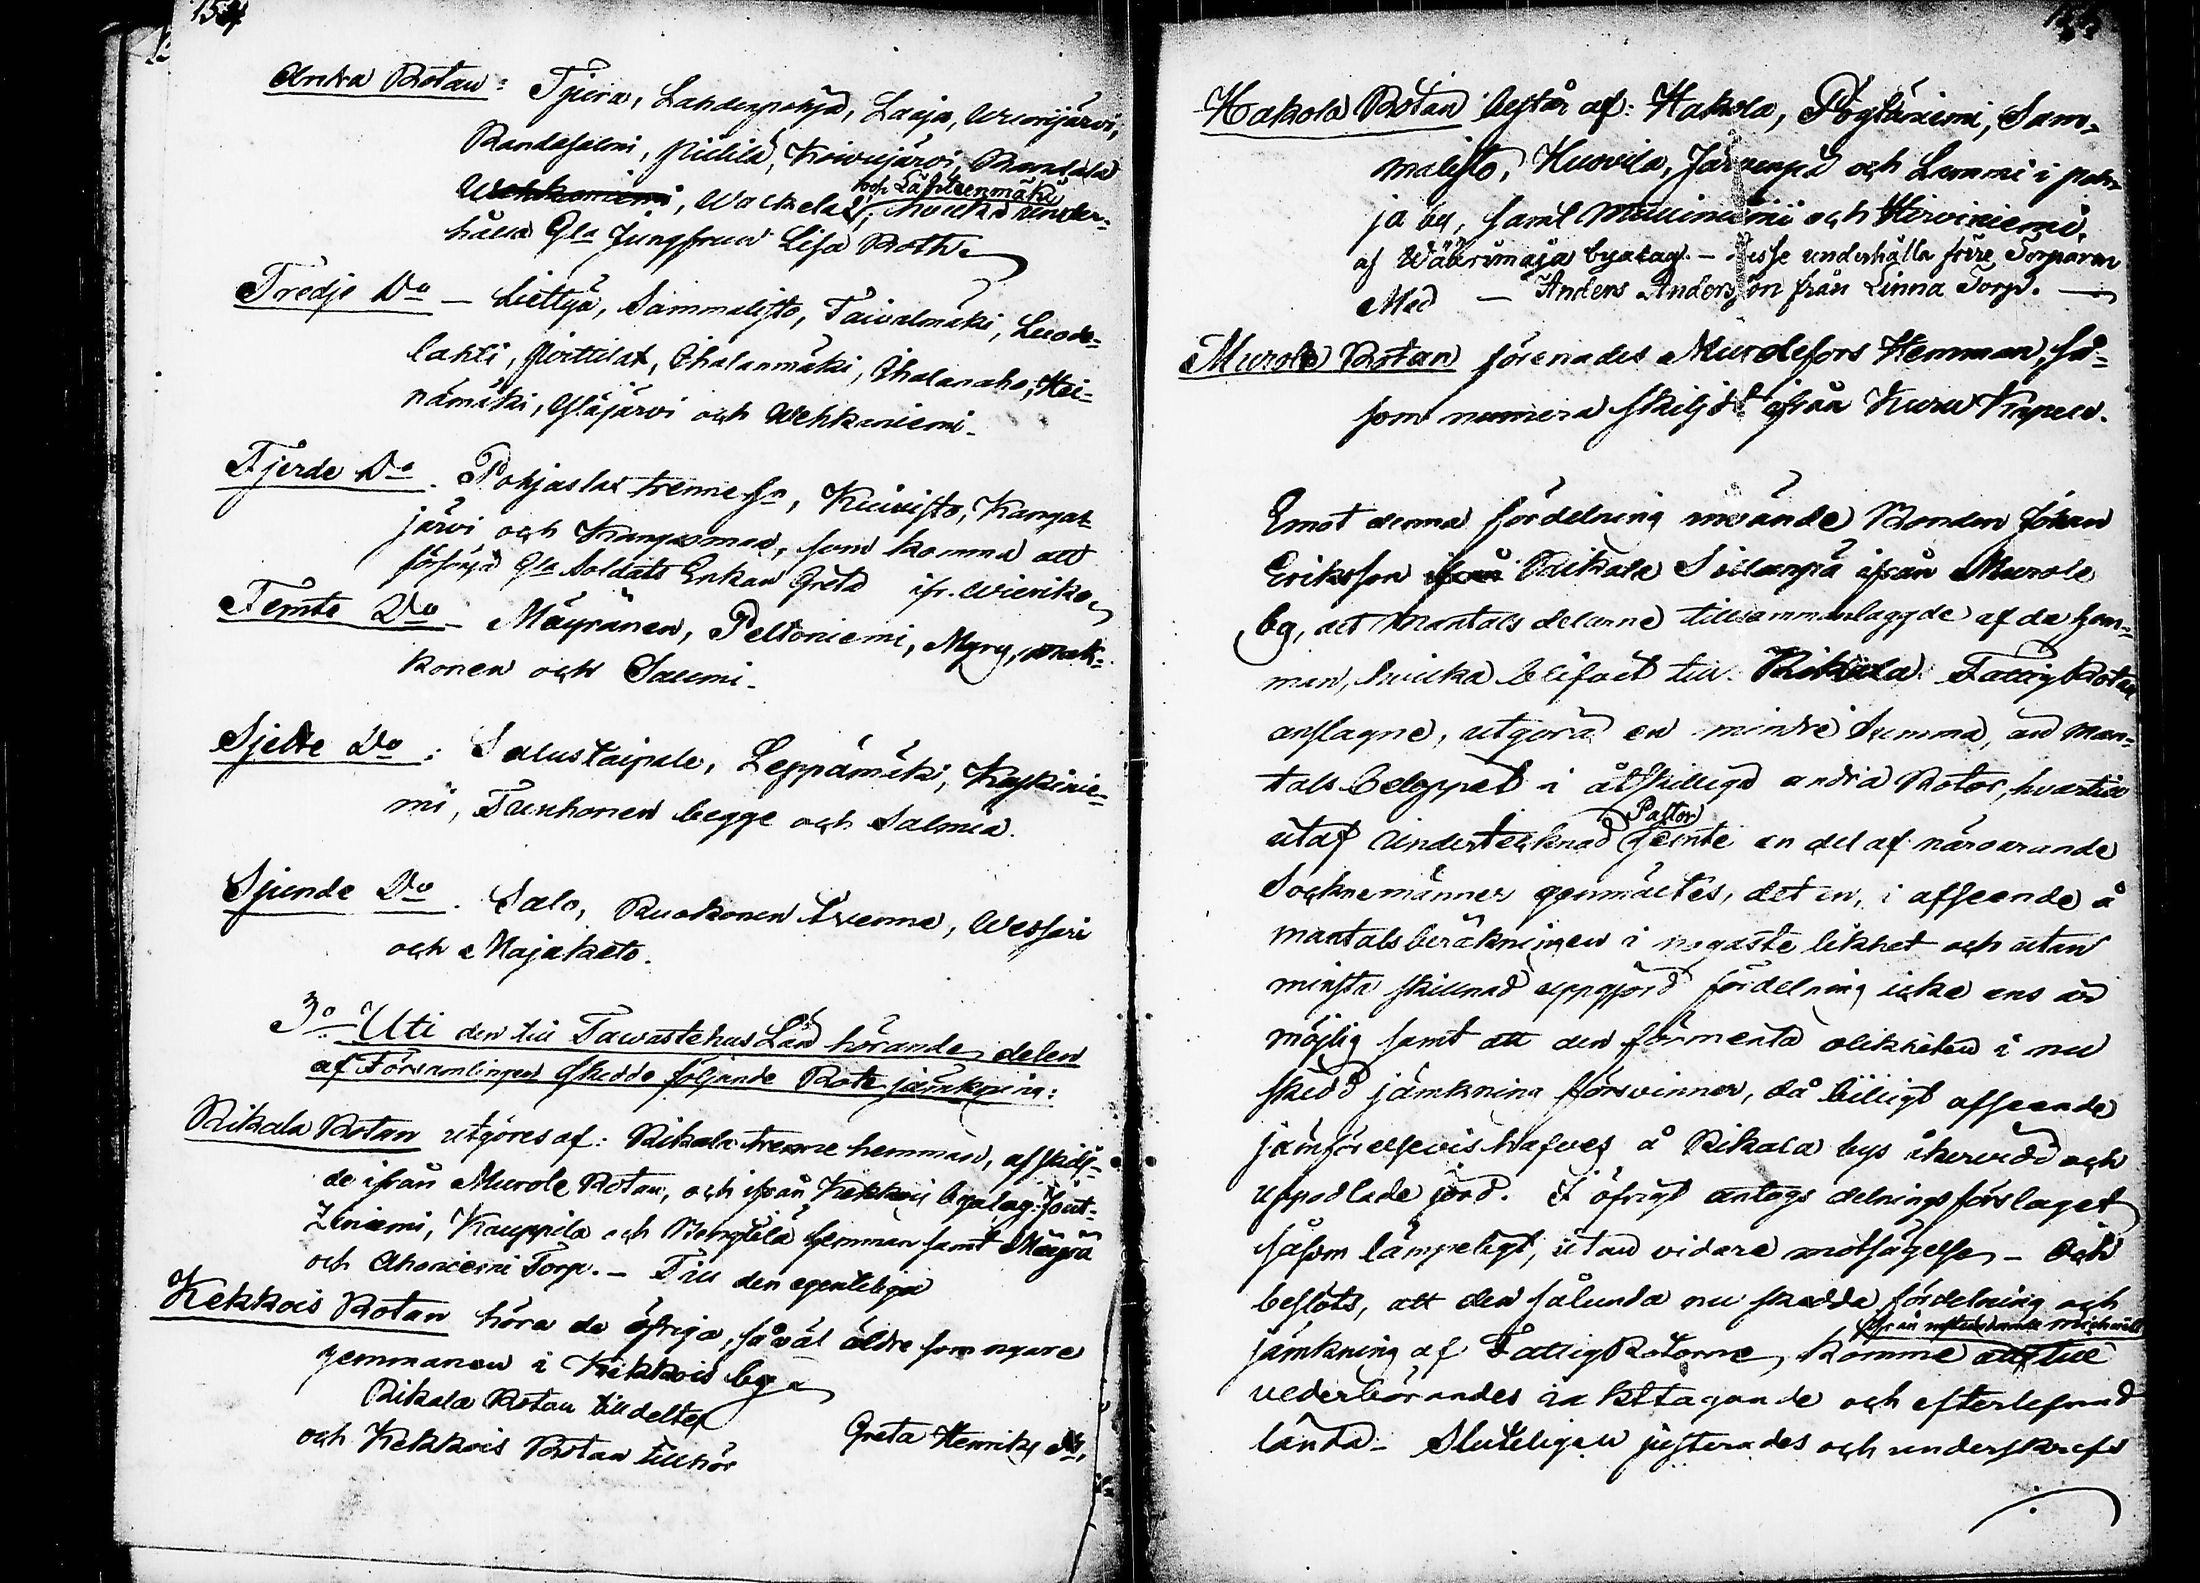 154
Andra Rotan: Tjura, Lahdenpohja, Laija, Wuorijärvi,
Randasalmi, Pilkilä, Koivujärvi, Randala
Wehkaniemi, Walkelax, hvilka under-
och Lähteenmäki
hålla Gla Jungfrun Lisa Roth.
Tredje Do — Liettyä, Sammalisto, Taivalmäki, Luode-
lahti, Pirttilax, Ohalanmäki, Ohalanaho, Hei-
nämäki, Yläjärvi och Wehkaniemi.
Fjerde Do. Pohjaslax trenne sn, Kuivisto, Kangas-
järvi och Kangasmaa, som komma att
försörja Gla Soldats Enkan Greta ifr. Wierikko
Femte Do — Mäyränen, Peltoniemi, Myry, Mak-
konen och Salmi.
Sjette Do: Salustaipale, Leppämäki, Koskinie-
mi, Taxhonen begge och Salmia.
Sjunde Do. Salo, Ruokonen tvenne, Wessari
och Majakato.
3o Uti den till Tawastehus Län hörande delen
af Församlingen skedde följande Rote jämkning:
Rikala Rotan utgöres af: Rikala trenne hemman, afskilj-
de ifrån Murole Rotan, och ifrån Kekkois byalag: Jout-
ziniemi, Kauppila och Bengtilä hemman samt Mäyrä
och Ahoniemi Torp. — Till den egenteliga
Kekkois Rotan höra de öfriga, såväl äldre som nyare
hemmanen i Kekkois by
Rikala Rotan tilldeltes
och Kekkois Rotan tillhör
Greta Henriks dr,
155
Hakola Rotan består af: Hakola, Poytäniemi, Sam-
malisto, Huovila, Järvenpä och Lummi i poh-
ja by, samt Mylliniemi och Hirviniemi,
af Wäärinmaja byalag. — Desse underhålla förre Torparen
Med — Anders Andersson från Linna Torp. —
Murole Rotan förenades Murolefors Hemman, så-
som numera skiljdt ifrån Kuru Kapell.
Emot denna fördelning invände Bonden Johan
Eriksson ifrån Paikala Sillanpä ifrån Murole
by, att Mantals delarne tillsammanlagde af de hem-
man, hvilka blifvit till Rikala Fattig Rotan
anslagne, utgöra en mindre Summa, än Man-
tals beloppet i åtskilliga andra Rotor, hvartill
utaf Undertecknad Gemte en del af närvarande
Pastor
Socknemänner genmältes, det en, i afseende å
mantalsberäkningen i nogaste likhet och utan
minsta skillnad uppgjord fördelning icke ens är
möjlig samt att den förmenta olikheten i nu
skedd jämkning försvinner, då billigt afseende
jämförelsevis hafves å Rikala bys åkervidd och
uppodlade jord. I öfrigt antogs delningsförslaget
såsom lämpeligt, utan vidare motsägelse — Och
beslöts, att den sålunda nu skedda fördelning och
från nästkommande Michaëlis
jämkning af FattigRotorne, komme att till
vederbörandes iakttagande och efterlefnad
lända. — Sluteligen justerades och underskrefs